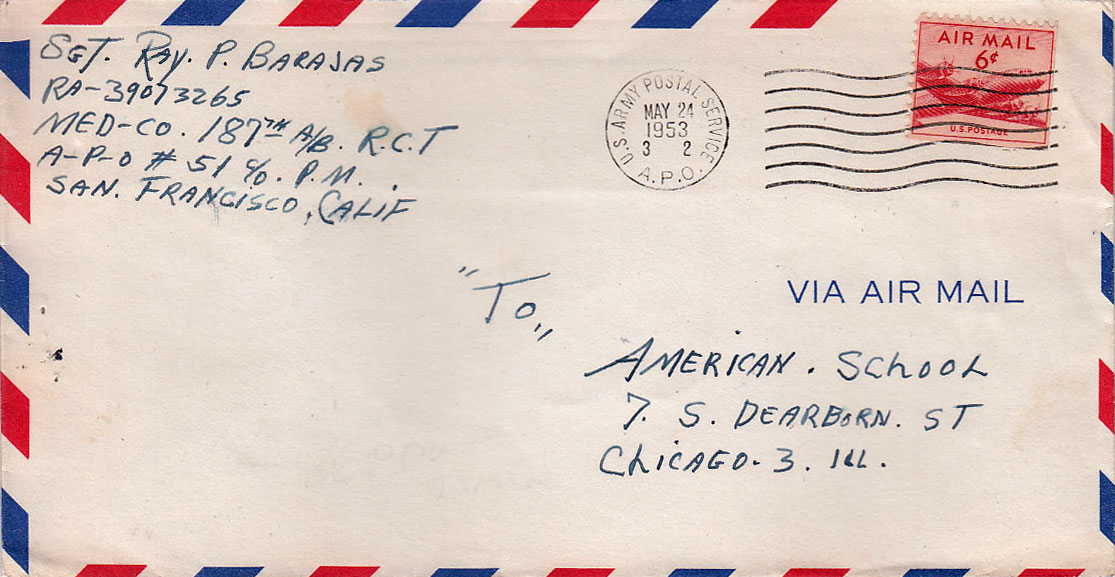 SGT. RAY. P. BARAJAS
RA-39073265
MED-CO. 187TH A/B. R.C.T
A-P-O # 51 c/o. P.M.
SAN. FRANCISCO, CALIF
U.S. ARMY POSTAL SERVICE
MAY 24
1953
3 2
A.P.O.
AIR MAIL
6¢
U.S. POSTAGE
VIA AIR MAIL
"To"
AMERICAN. SCHOOL
7. S. DEARBORN. ST
CHICAGO-3. ILL.